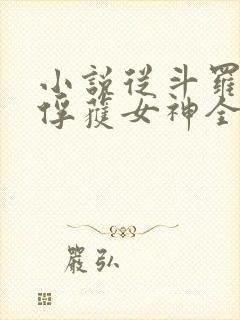 小説從斗羅
俘獲女神全
嚴弘